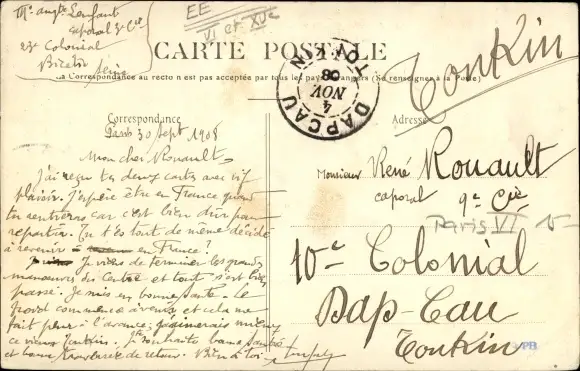 Mr. Angte Lenfant
caporal 3e Cie
23e Colonial
Bicêtre
Seine
EE
VI et XVe
CARTE POSTALE
La Correspondance au recto n'est pas acceptée par tous les pays étrangers (Se renseigner à la Poste)
TONKIN
4
NOV
08
DAPCAU
Tonkin
Correspondance
Paris 30 Sept 1908
Mon cher Rouault
J'ai reçu tes deux cartes avec vif
plaisir. J'espère être en France quand
tu rentreras car c'est bien dur pour
repartir. Tu t'es tout de même décidé
à revenir en France ?
Je viens de terminer les grandes
manœuvres du Centre et tout s'est bien
passé. Je suis en bonne santé. Le
froid commence à venir et cela me
fait peur à l'avance; j'aimerais mieux
ce vieux Tonkin. Je te souhaite bonne santé
et bonne traversée de retour. Bien à toi
Adresse
Monsieur René Rouault
caporal 9e Cie
Paris VI
10e Colonial
Dap-Cau
Tonkin
PB